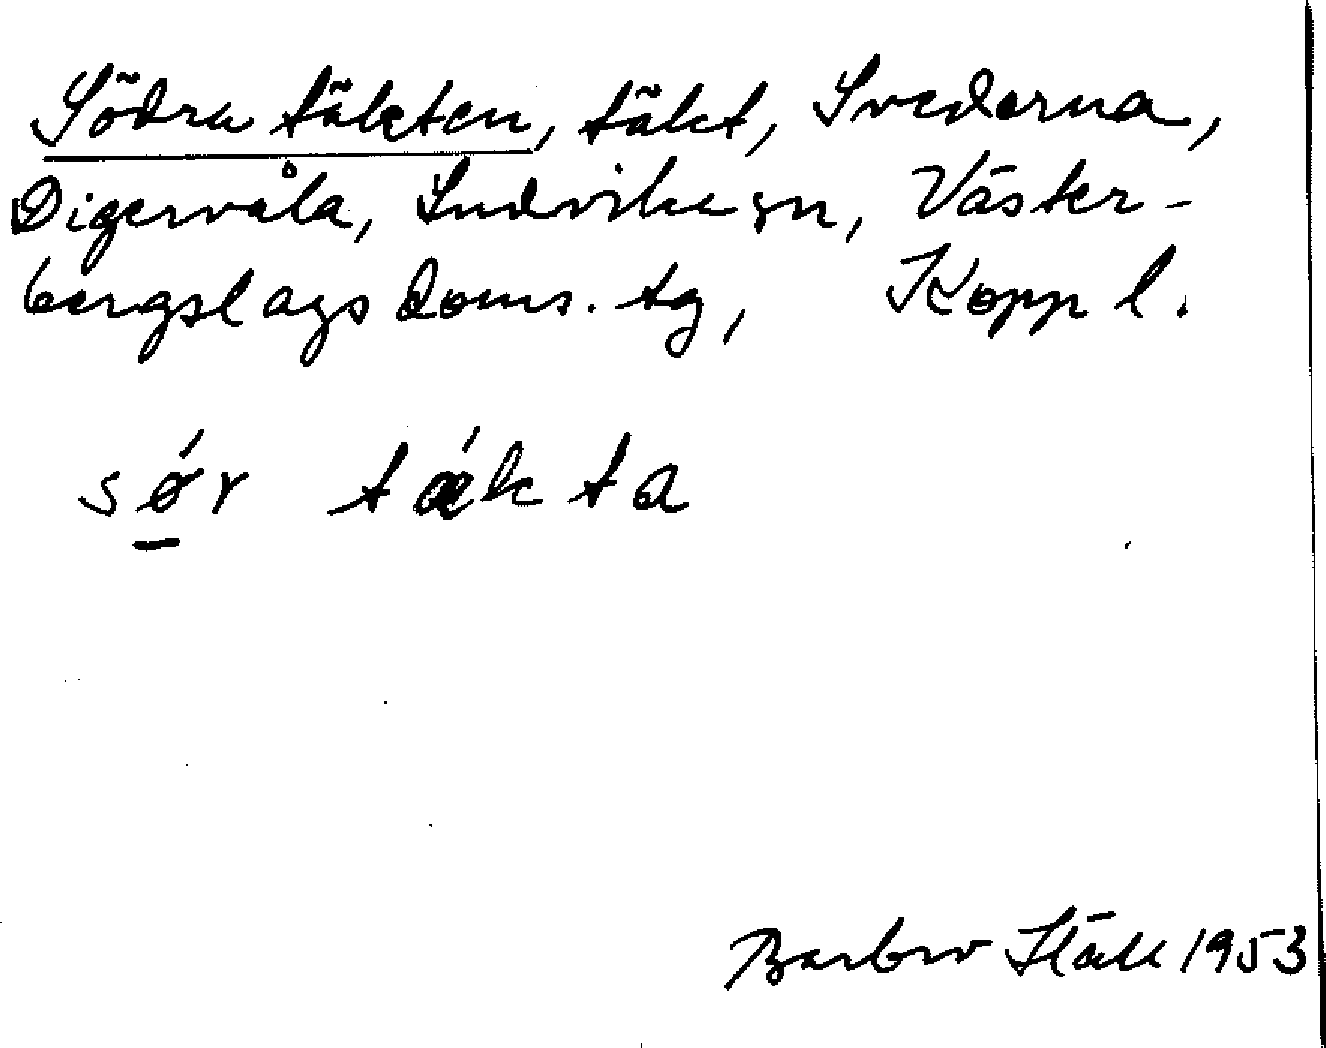 Södra täkten, täkt, Svederna,
Digervåla, Ludvika sn, Väster-
bergslags doms. tg, Kopp l.
sǿr tǽkta
Barbro Ståll 1953